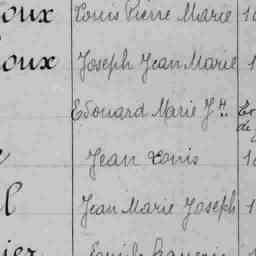 oux Louis Pierre Marie 1
oux Joseph Jean Marie 1
Edouard Marie Jh
de
Jean Louis 1
l Jean Marie Joseph 1
ier